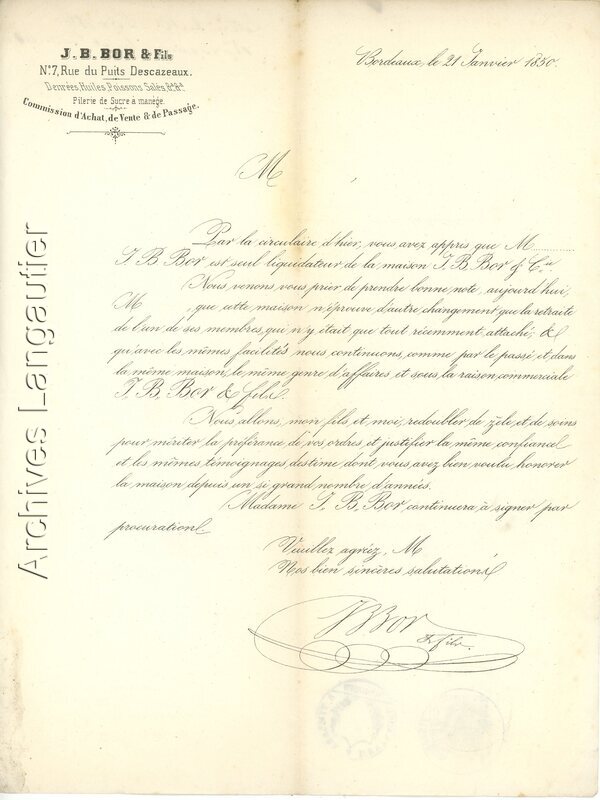 J. B. BOR & Fils
N.º 7, Rue du Puits Descazeaux.
Denrées, Huiles, Poissons Salés, &ª. &ª.
Pilerie de Sucre à manège.
Commission d'Achat, de Vente & de Passage.
Bordeaux, le 21 Janvier 1850.
M
Par la circulaire d'hier, vous avez appris que M
J. B. Bor est seul liquidateur de la maison J. B. Bor & C.ie
Nous venons vous prier de prendre bonne note, aujourd'hui,
M , que cette maison n'éprouve d'autre changement que la retraite
de l'un de ses membres, qui n'y était que tout récemment attaché; &
qu'avec les mêmes facilités nous continuons, comme par le passé, et dans
la même maison, le même genre d'affaires, et sous la raison commerciale
J. B. Bor & fils.
Nous allons, mon fils et moi, redoubler de zèle et de soins
pour mériter la préférence de vos ordres, et justifier la même confiance
et les mêmes témoignages d'estime dont vous avez bien voulu honorer
la maison depuis un si grand nombre d'années.
Madame J. B. Bor continuera à signer par
procuration.
Veuillez agréer, M
Nos bien sincères salutations
J B Bor
& fils.
Archives Langautier